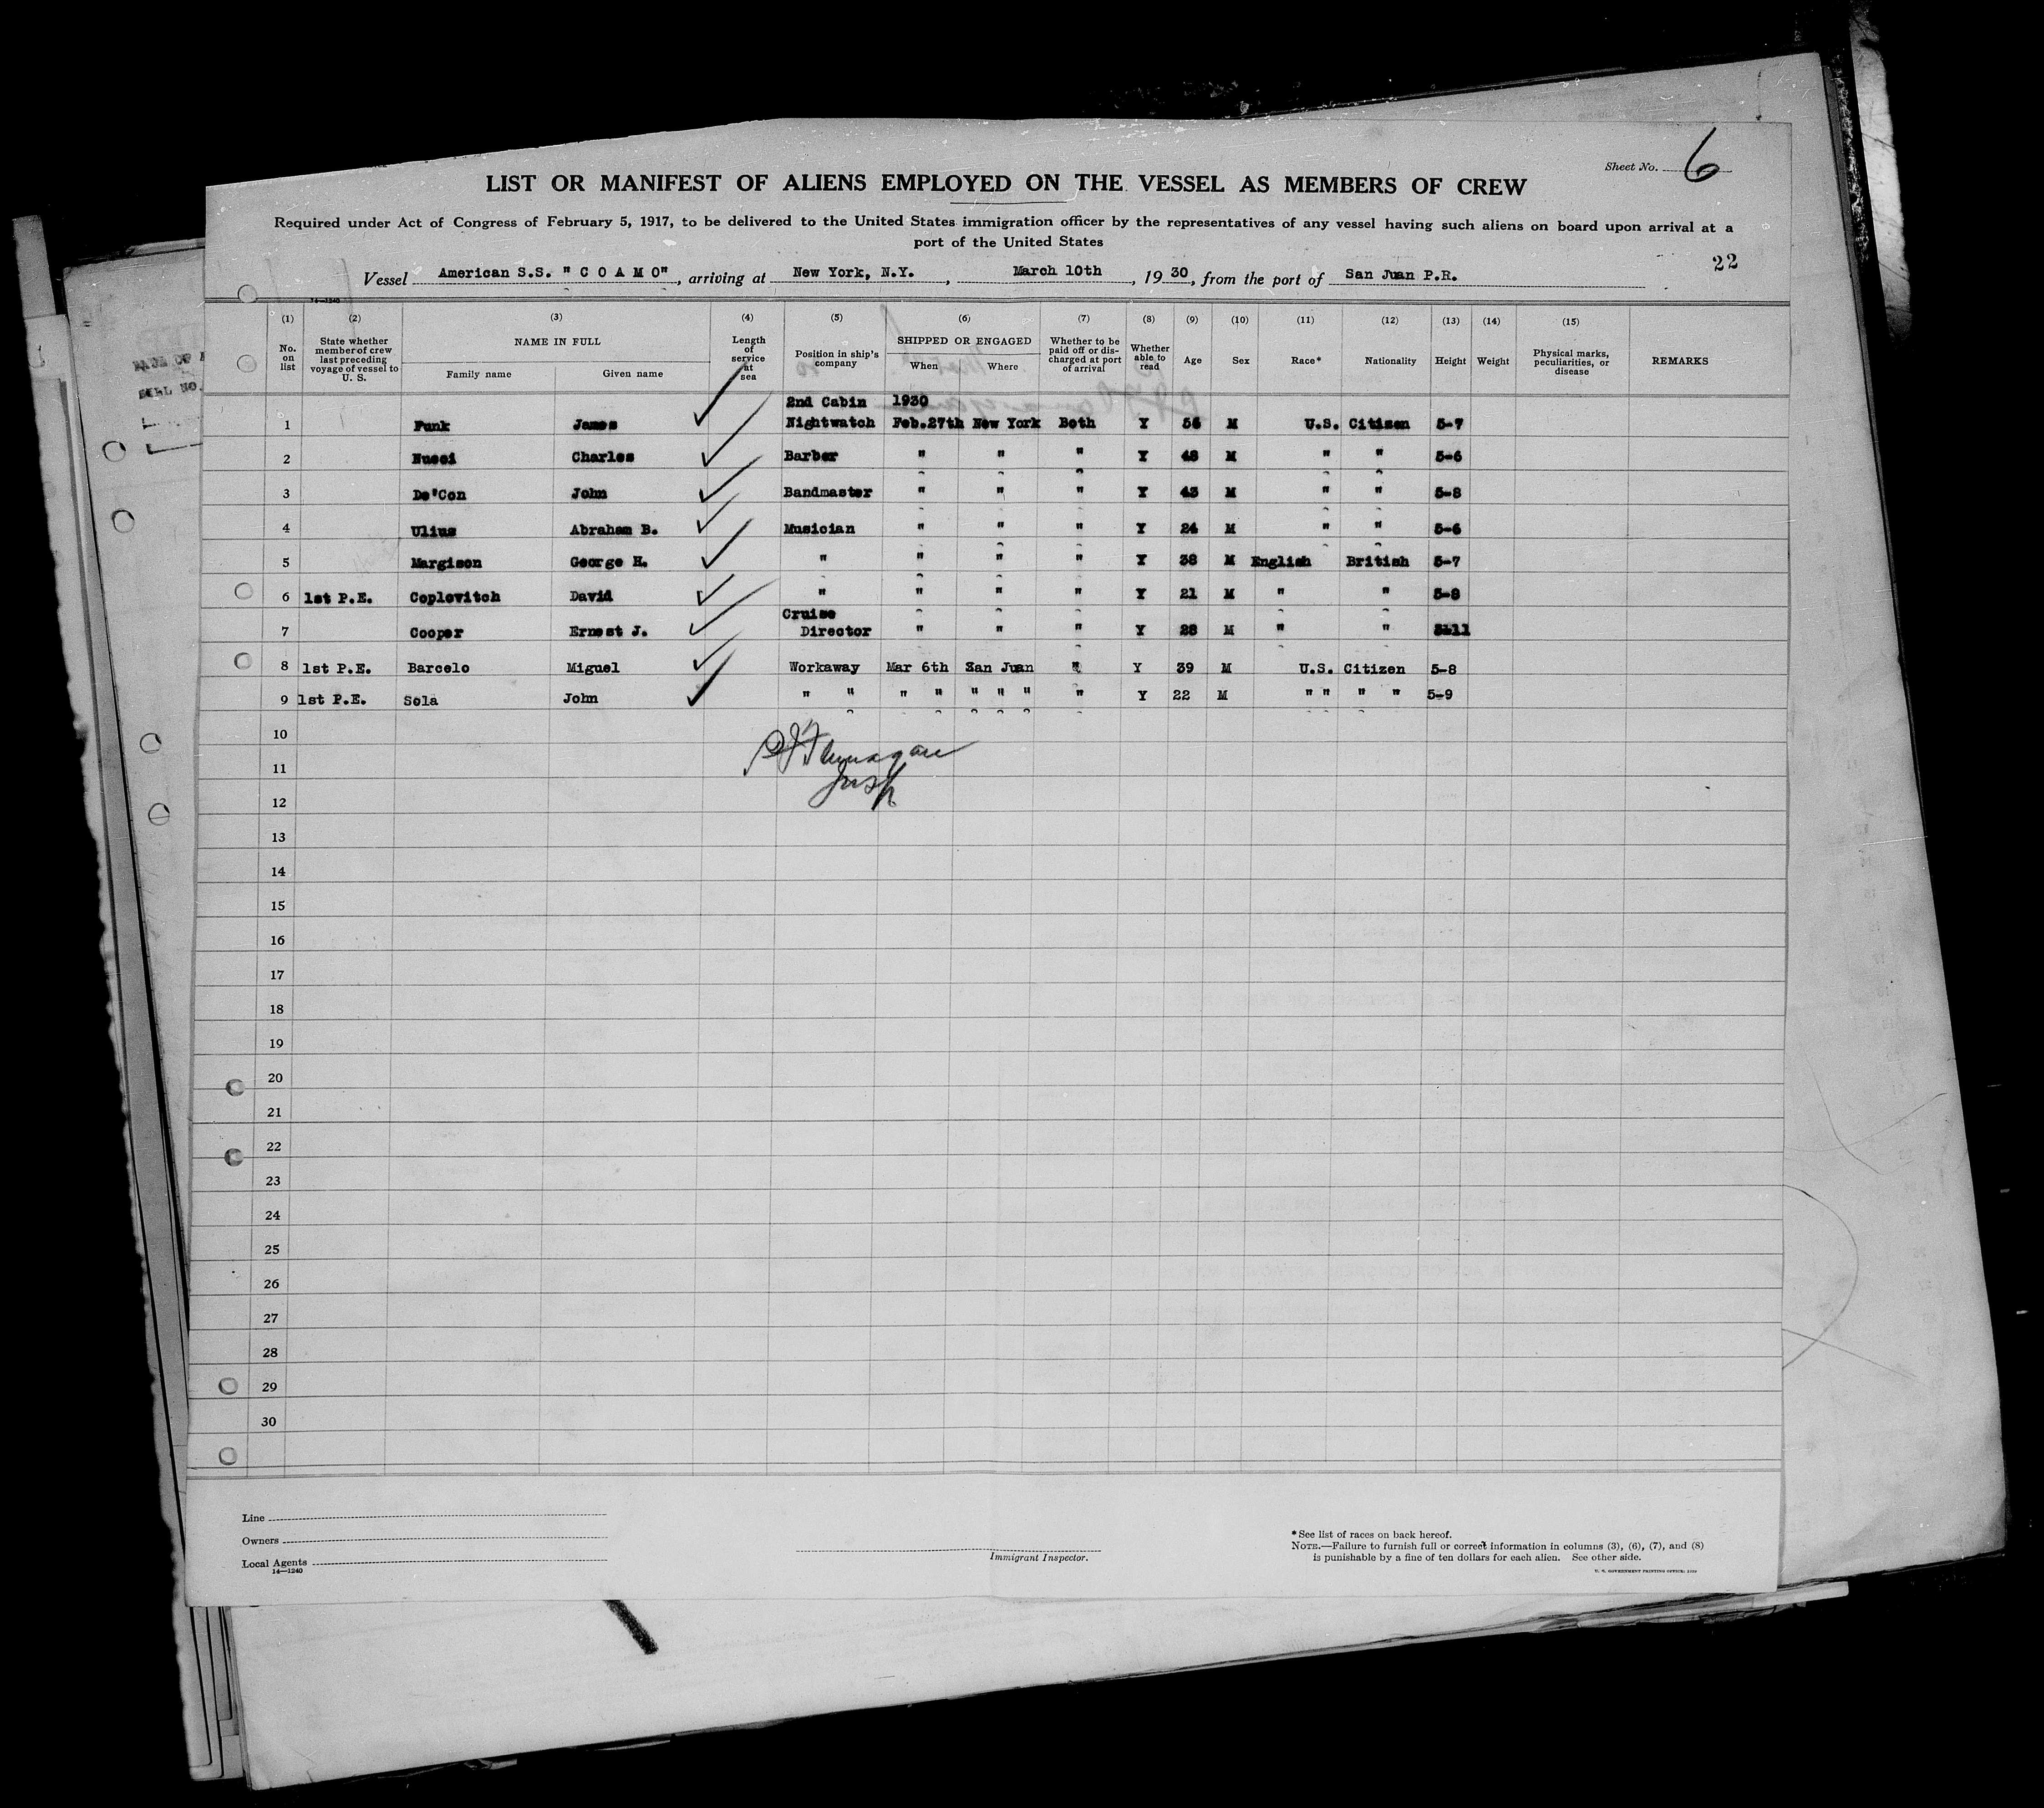 Sheet No. 6
LIST OR MANIFEST OF ALIENS EMPLOYED ON THE VESSEL AS MEMBERS OF CREW
Required under Act of Congress of February 5, 1917, to be delivered to the United States immigration officer by the representatives of any vessel having such aliens on board upon arrival at a
port of the United States
22
Vessel American S.S. " C O A M O", arriving at New York, N.Y., March 10th, 1930, from the port of San Juan P.R.
14—1240
(1) (2) (3) (4) (5) (6) (7) (8) (9) (10) (11) (12) (13) (14) (15)
No. on list
State whether member of crew last preceding voyage of vessel to U. S.
NAME IN FULL
Family name Given name
Length of service at sea
Position in ship's company
SHIPPED OR ENGAGED
When Where
Whether to be paid off or discharged at port of arrival
Whether able to read
Age Sex Race* Nationality Height Weight
Physical marks, peculiarities, or disease
REMARKS
2nd Cabin 1930
1 Funk James Nightwatch Feb.27th New York Both Y 56 M U.S. Citizen 5-7
2 Nucci Charles Barber " " " Y 48 M " " 5-6
3 De'Con John Bandmaster " " " Y 43 M " " 5-8
4 Ulius Abraham B. Musician " " " Y 24 M " " 5-6
5 Margison George H. " " " " Y 38 M English British 5-7
6 1st P.E. Coplovitch David " " " " Y 21 M " " 5-8
Cruise
7 Cooper Ernest J. Director " " " Y 28 M " "
8 1st P.E. Barcelo Miguel Workaway Mar 6th San Juan " Y 39 M U.S. Citizen 5-8
9 1st P.E. Sola John " " " " " " " " Y 22 M " " " " 5-9
10
11
Insp
12
13
14
15
16
17
18
19
20
21
22
23
24
25
26
27
28
29
30
Line
Owners
Local Agents
14—1240
Immigrant Inspector.
*See list of races on back hereof.
NOTE.—Failure to furnish full or correct information in columns (3), (6), (7), and (8)
is punishable by a fine of ten dollars for each alien. See other side.